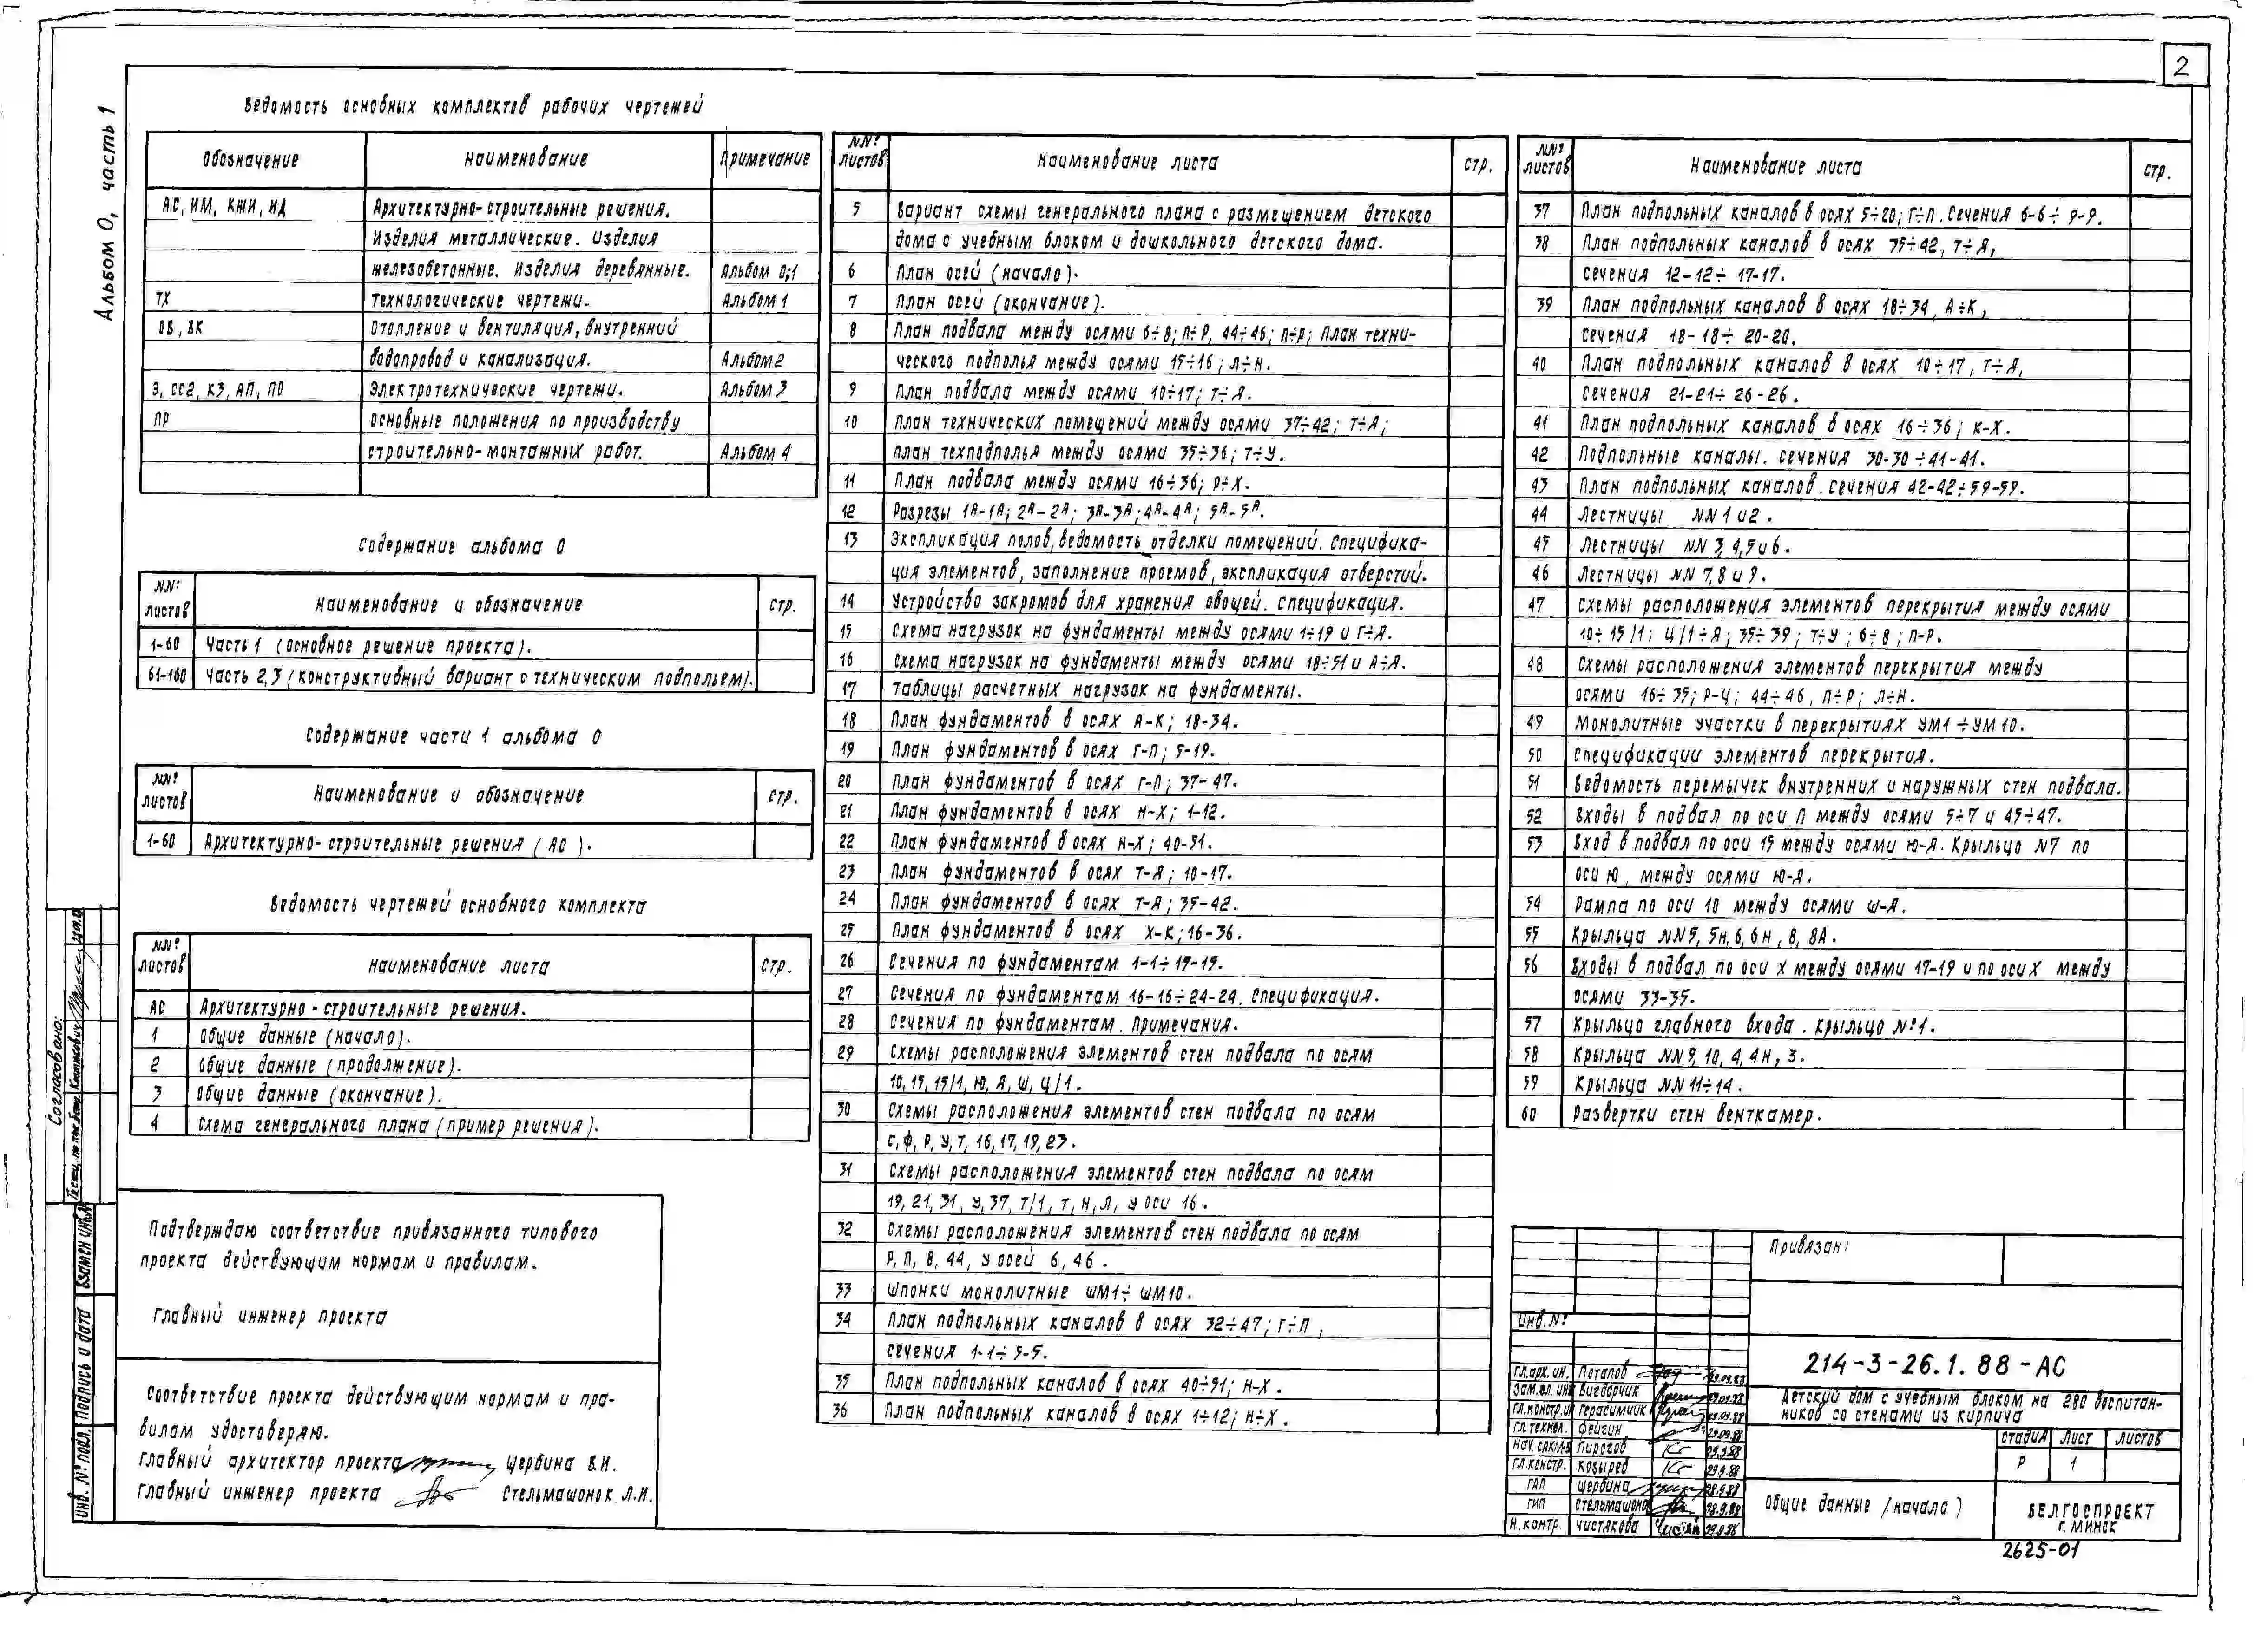 2
Альбом 0, часть 1
Ведомость основных комплектов рабочих чертежей
Обозначение | Наименование | Примечание
АС, ИМ, КЖИ, ИД | Архитектурно-строительные решения.
Изделия металлические. Изделия
железобетонные. Изделия деревянные. | Альбом 0;1
ТХ | Технологические чертежи. | Альбом 1
ОВ, ВК | Отопление и вентиляция, внутренний
водопровод и канализация. | Альбом 2
Э, СС2, КЗ, АП, ПО | Электротехнические чертежи. | Альбом 3
ПР | Основные положения по производству
строительно-монтажных работ. | Альбом 4
Содержание альбома 0
NN: листов | Наименование и обозначение | стр.
1-60 | Часть 1 (основное решение проекта).
61-160 | Часть 2,3 (конструктивный вариант с техническим подпольем).
Содержание части 1 альбома 0
NN: листов | Наименование и обозначение | стр.
1-60 | Архитектурно-строительные решения (АС).
Ведомость чертежей основного комплекта
NN: листов | Наименование листа | стр.
АС | Архитектурно-строительные решения.
1 | Общие данные (начало).
2 | Общие данные (продолжение).
3 | Общие данные (окончание).
4 | Схема генерального плана (пример решения).
Подтверждаю соответствие привязанного типового
проекта действующим нормам и правилам.
Главный инженер проекта
Соответствие проекта действующим нормам и пра-
вилам удостоверяю.
Главный архитектор проекта Щербина В.И.
Главный инженер проекта Стельмашонок Л.И.
NN: листов | Наименование листа | стр.
5 | Вариант схемы генерального плана с размещением детского
дома с учебным блоком и дошкольного детского дома.
6 | План осей (начало).
7 | План осей (окончание).
8 | План подвала между осями 6÷8; П÷Р, 44÷46; П÷Р; План техни-
ческого подполья между осями 15÷16; Л÷Н.
9 | План подвала между осями 10÷17; Т÷Я.
10 | План технических помещений между осями 37÷42; Т÷Я;
план техподполья между осями 35÷36; Т÷У.
11 | План подвала между осями 16÷36; Р÷Х.
12 | Разрезы 1А-1А; 2А-2А; 3А-3А; 4А-4А; 5А-5А.
13 | Экспликация полов, ведомость отделки помещений. Специфика-
ция элементов, заполнение проемов, экспликация отверстий.
14 | Устройство закромов для хранения овощей. Спецификация.
15 | Схема нагрузок на фундаменты между осями 1÷19 и Г÷Я.
16 | Схема нагрузок на фундаменты между осями 18÷51 и А÷Я.
17 | Таблицы расчетных нагрузок на фундаменты.
18 | План фундаментов в осях А-К; 18-34.
19 | План фундаментов в осях Г-П; 5-19.
20 | План фундаментов в осях Г-П; 37-47.
21 | План фундаментов в осях Н-Х; 1-12.
22 | План фундаментов в осях Н-Х; 40-51.
23 | План фундаментов в осях Т-Я; 10-17.
24 | План фундаментов в осях Т-Я; 35-42.
25 | План фундаментов в осях Х-К; 16-36.
26 | Сечения по фундаментам 1-1÷15-15.
27 | Сечения по фундаментам 16-16÷24-24. Спецификация.
28 | Сечения по фундаментам. Примечания.
29 | Схемы расположения элементов стен подвала по осям
10, 15, 15/1, Ю, Я, Ш, Ц/1.
30 | Схемы расположения элементов стен подвала по осям
С, Ф, Р, У, Т, 16, 17, 19, 23.
31 | Схемы расположения элементов стен подвала по осям
19, 21, 31, У, 37, Т/1, Т, Н, Л, у оси 16.
32 | Схемы расположения элементов стен подвала по осям
Р, П, 8, 44, у осей 6, 46.
33 | Шпонки монолитные ШМ1÷ШМ10.
34 | План подпольных каналов в осях 32÷47; Г÷П,
сечения 1-1÷5-5.
35 | План подпольных каналов в осях 40÷51; Н-Х.
36 | План подпольных каналов в осях 1÷12; Н÷Х.
NN: листов | Наименование листа | стр.
37 | План подпольных каналов в осях 5÷20; Г÷П. Сечения 6-6÷9-9.
38 | План подпольных каналов в осях 35÷42, Т÷Я,
сечения 12-12÷17-17.
39 | План подпольных каналов в осях 18÷34, А÷К,
сечения 18-18÷20-20.
40 | План подпольных каналов в осях 10÷17, Т÷Я,
сечения 21-21÷26-26.
41 | План подпольных каналов в осях 16÷36; К-Х.
42 | Подпольные каналы. Сечения 30-30÷41-41.
43 | План подпольных каналов. Сечения 42-42÷59-59.
44 | Лестницы NN 1 и 2.
45 | Лестницы NN 3, 4, 5 и 6.
46 | Лестницы NN 7, 8 и 9.
47 | Схемы расположения элементов перекрытия между осями
10÷15/1; Ц/1÷Я; 35÷39; Т÷У; 6÷8; П-Р.
48 | Схемы расположения элементов перекрытия между
осями 16÷35; Р-Ц; 44÷46, П÷Р; Л÷Н.
49 | Монолитные участки в перекрытиях УМ1÷УМ10.
50 | Спецификации элементов перекрытия.
51 | Ведомость перемычек внутренних и наружных стен подвала.
52 | Входы в подвал по оси П между осями 5÷7 и 45÷47.
53 | Вход в подвал по оси 15 между осями Ю-Я. Крыльцо N7 по
оси Ю, между осями Ю-Я.
54 | Рампа по оси 10 между осями Ш-Я.
55 | Крыльца NN 5, 5н, 6, 6н, 8, 8А.
56 | Входы в подвал по оси Х между осями 17-19 и по оси Х между
осями 33-35.
57 | Крыльцо главного входа. Крыльцо №1.
58 | Крыльца NN 9, 10, 4, 4н, 3.
59 | Крыльца NN 11÷14.
60 | Развертки стен венткамер.
Привязан:
Инв.№
214-3-26.1.88-АС
Детский дом с учебным блоком на 280 воспитан-
ников со стенами из кирпича
Гл.арх.ин. | Потапов | 29.09.88
Зам.гл.инж | Вигдорчик | 29.09.88
Гл.констр.ин | Герасимчик | 29.09.88
Гл.технол. | Фейгин | 29.09.88
Нач. САКМ-5 | Пирогов | 29.9.88
Гл.констр. | Козырев | 29.9.88
ГАП | Щербина | 28.9.88
ГИП | Стельмашоно | 28.9.88
Н.контр. | Чистякова | 29.9.88
Стадия | Лист | Листов
Р | 1
Общие данные (начало)
БЕЛГОСПРОЕКТ
г. МИНСК
2625-01
Согласовано:
Взамен инв.№
Подпись и дата
Инв. № подл.